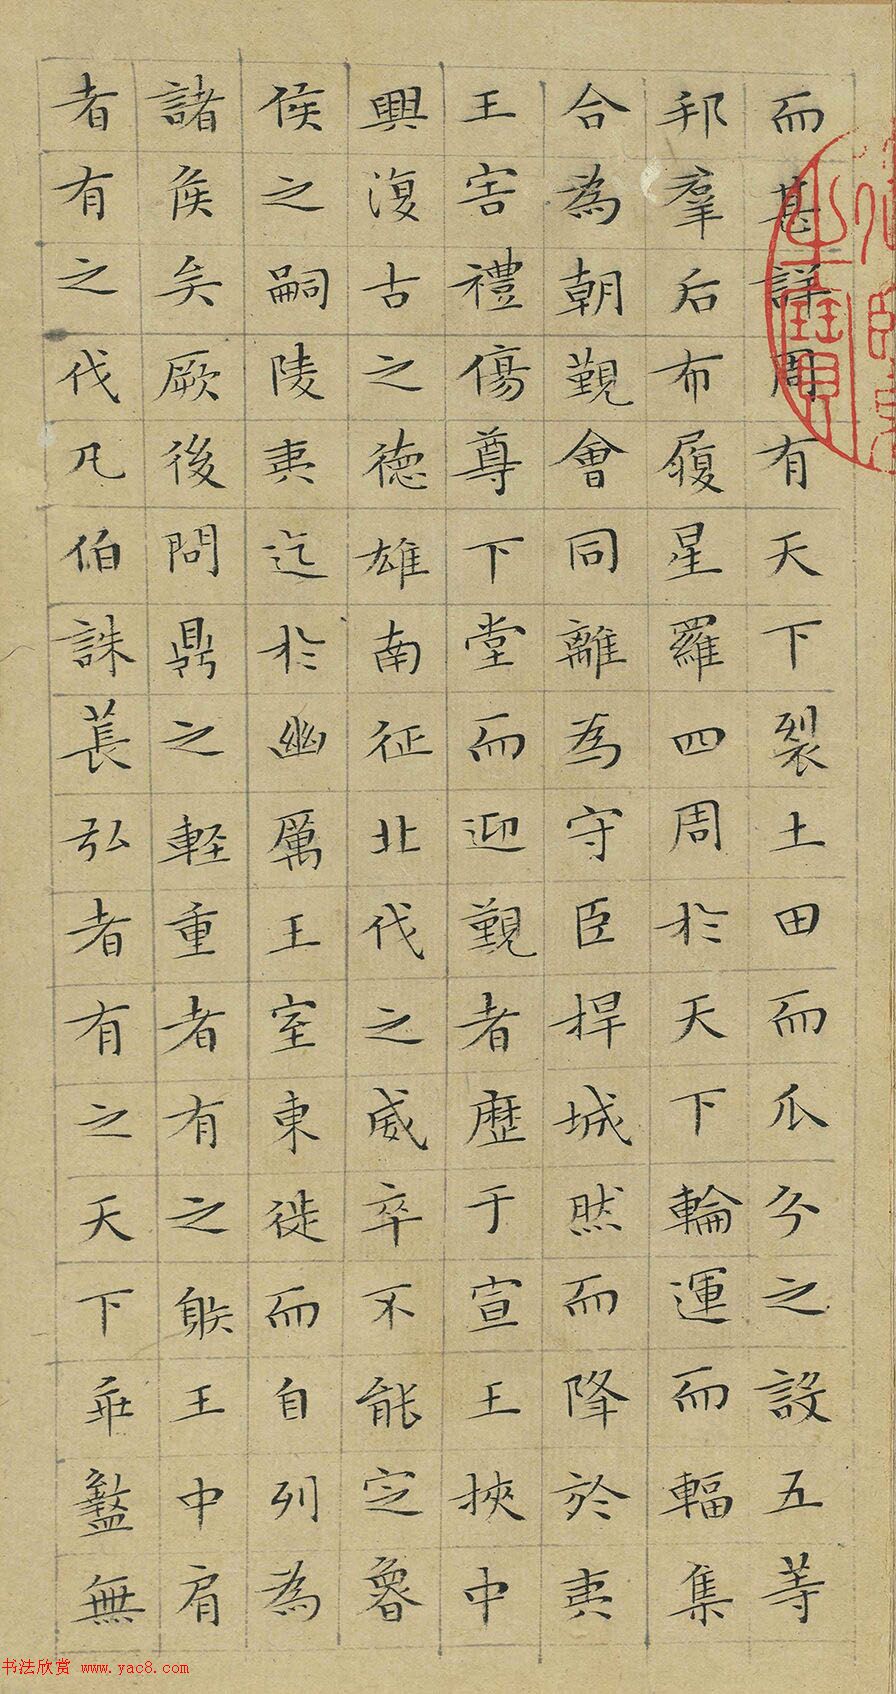 而甚詳周有天下裂土田而瓜分之設五等
邦羣后布履星羅四周於天下輪運而輻集
合為朝覲會同離為守臣捍城然而降於夷
王害禮傷尊下堂而迎覲者歷于宣王挾中
興復古之德雄南征北伐之威卒不能定魯
侯之嗣陵夷迄於幽厲王室東徙而自列為
諸侯矣厥後問鼎之軽重者有之射王中肩
者有之伐凡伯誅萇弘者有之天下乖盭無
书法欣赏 www.yac8.com